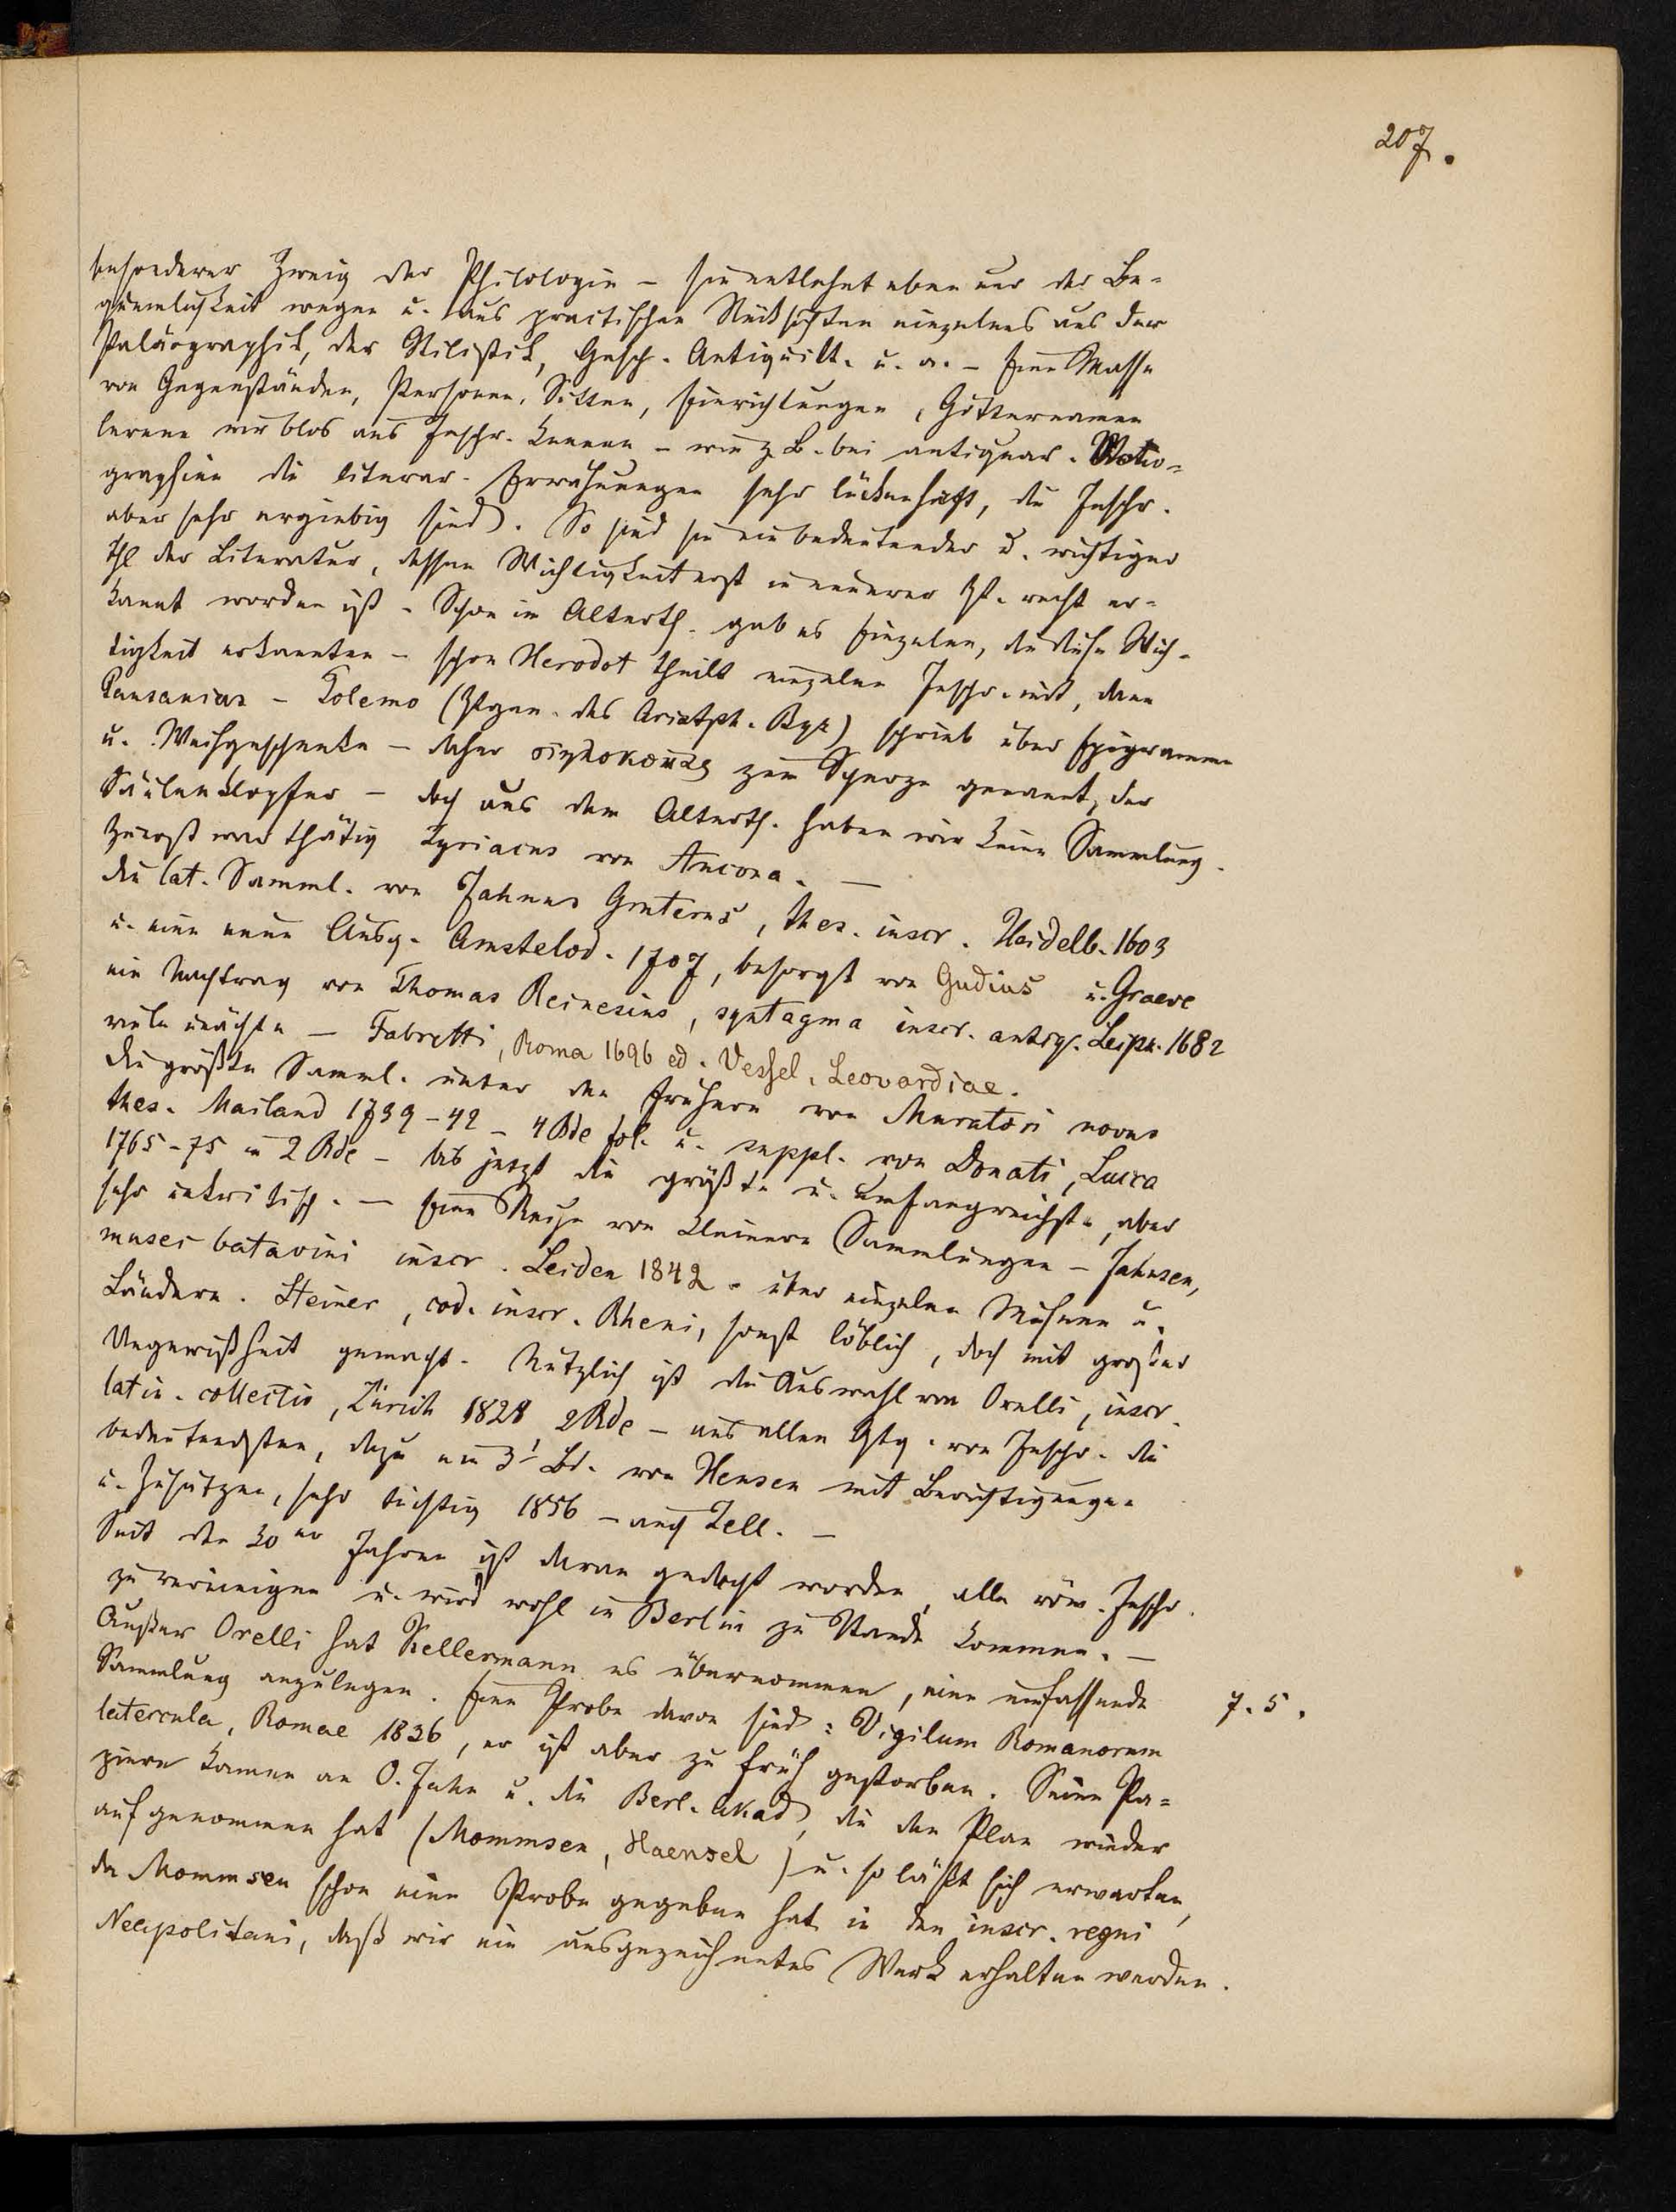 207.
besonderer Zweig der Philologie – sie entlehnt eben nur der Be-
quemlichkeit wegen u. aus practischen Rücksichten einzelnes aus der
Paläographik, der Stilistik, Gesch. Antiquität. u. a. – Eine Masse
von Gegenständen, Personen, Sitten, Einrichtungen, Götternamen
lernen wir blos aus Inschr. kennen – wie z. B. bei antiquar.
graphien die literar. Erwähnungen sehr lückenhaft, die Inschr.
aber sehr ergiebig sind. So sind sie ein bedeutender u. wichtiger
Thl der Literatur, dessen Wichtigkeit erst in neuerer Zt. recht er-
kannt worden ist. Schon im Alterth. gab es Einzelne, die diese Wich-
tigkeit erkannten – schon Herodot theilt einzelne Inschr. mit, dann
Pausanias – Polemo (Ztgen. des Aristph. Byz) schrieb über Epigramme
u. Weihgeschenke – daher στηλοκόπας zum Scherze genannt, der
Säulenklopfer – doch aus dem Alterth. haben wir keine Sammlung.
Zuerst war thätig Kyriacus von Ancona. –
die lat. Samml. von Janus Gruterus, thes. inscr. Heidelb. 1603
u. eine neue Ausg. Amstelod. 1707, besorgt von Gudius u. Graeve
ein Nachtrag von Thomas Reinesius, syntagma inscr. antiq. Leipz. 1682
viele unächte – Fabretti, Roma 1696 ed. Vessel, Leovardiae.
die größte Samml. unter den frühern von Muratori novus
thes. Mailand 1739–42 – 4 Bde fol. u. suppl. von Donati, Lucca
1765–75 in 2 Bde – bis jetzt die größte u. umfangreichste, aber
sehr unkritisch. – Eine Reihe von kleinern Sammlungen – Jahnsen,
musei batavini inscr. Leiden 1842. über einzelne Museen u.
Ländern. Steiner, cod. inscr. Rheni, sonst löblich, doch mit großer
Ungewißheit gemacht. Nützlich ist die Auswahl von Orelli, inscr.
latin. collectio, Zürich 1828, 2 Bde – aus allen Gtg. von Inschr. die
bedeutendsten, dazu ein 3' Bd. von Hensen mit Berichtigungen
u. Zusätzen, sehr tüchtig 1856 – auch Zell. –
Seit den 30er Jahren ist daran gedacht worden, alle röm. Inschr.
zu vereinigen u. wird wohl in Berlin zu Stande kommen. –
Außer Orelli hat Kellermann es übernommen, eine umfassende
Sammlung anzulegen. Eine Probe davon sind: Vigilum Romanorum
7. 5.
latercula, Romae 1836, er ist aber zu früh gestorben. Seine Pa-
piere kamen an O. Jahn u. die Berl. Akad, die den Plan wieder
aufgenommen hat (Mommsen, Haensel) u. so läßt sich erwarten,
da Mommsen schon eine Probe gegeben hat in den inscr. regni
Neapolitani, daß wir ein ausgezeichnetes Werk erhalten werden.